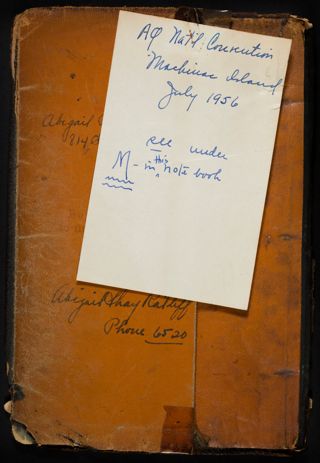 AΦ Nat'l. Convention
Mackinac Island
July 1956
see under
M - in this note book
Abigail
214
Abigail Shay Ratliff
Phone 6520